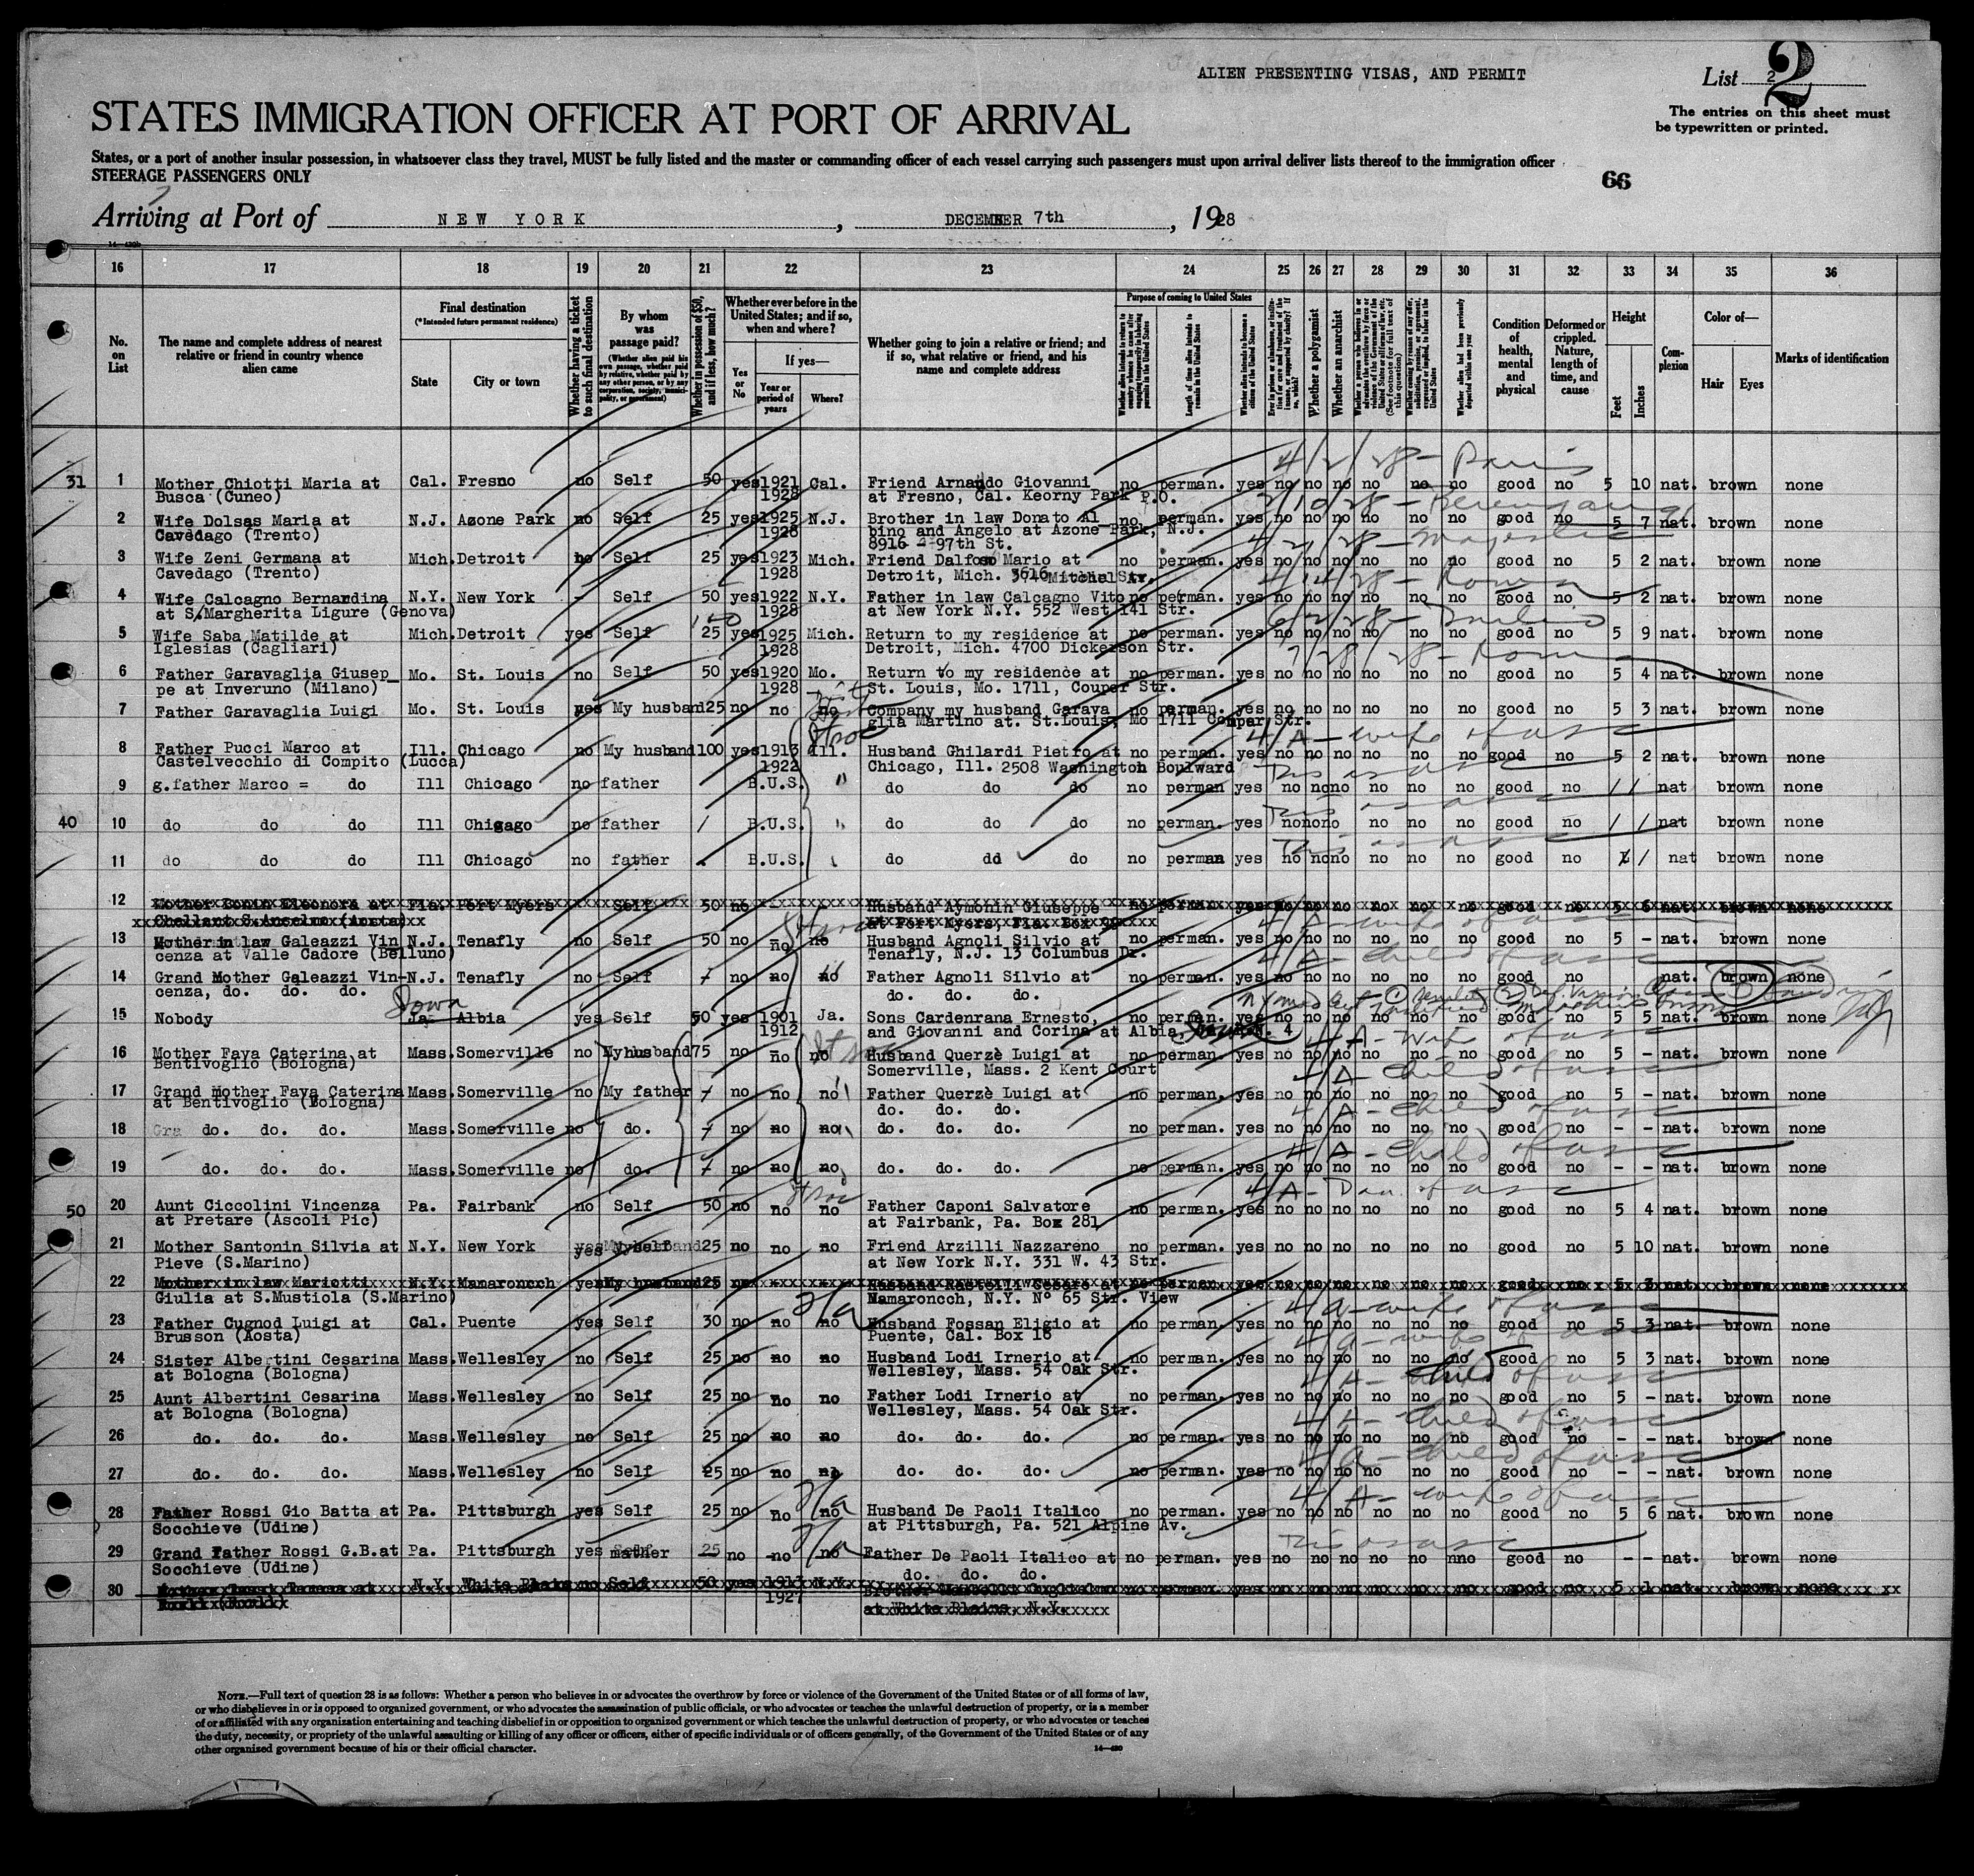 ALIEN PRESENTING VISAS, AND PERMIT
List 2
2
The entries on this sheet must
be typewritten or printed.
STATES IMMIGRATION OFFICER AT PORT OF ARRIVAL
States, or a port of another insular possession, in whatsoever class they travel, MUST be fully listed and the master or commanding officer of each vessel carrying such passengers must upon arrival deliver lists thereof to the immigration officer
STEERAGE PASSENGERS ONLY
66
Arriving at Port of NEW YORK, DECEMBER 7th, 1928
16 17 18 19 20 21 22 23 24 25 26 27 28 29 30 31 32 33 34 35 36
No. on List
The name and complete address of nearest relative or friend in country whence alien came
Final destination
(*Intended future permanent residence)
State
City or town
Whether having a ticket to such final destination
By whom was passage paid?
(Whether alien paid his own passage, whether paid by relative, whether paid by any other person, or by any corporation, society, municipality, or government)
Whether in possession of $50, and if less, how much?
Whether ever before in the United States; and if so, when and where?
Yes or No
If yes—
Year or period of years
Where?
Whether going to join a relative or friend; and if so, what relative or friend, and his name and complete address
Purpose of coming to United States
Length of time alien intends to remain in the United States
Whether alien intends to become a citizen of the United States
Whether a polygamist
Whether an anarchist
Whether alien had been previously deported within one year
Condition of health, mental and physical
Deformed or crippled. Nature, length of time, and cause
Height
Feet
Inches
Complexion
Color of—
Hair
Eyes
Marks of identification
4/2/28 - Paris
31 1 Mother Chiotti Maria at Cal. Fresno no Self 50 yes 1921 Cal. Friend Arnando Giovanni no perman. yes no no no no no no good no 5 10 nat. brown none
Busca (Cuneo) 1928 at Fresno, Cal. Keorny Park P.O.
2 Wife Dolsas Maria at N.J. Azone Park no Self 25 yes 1925 N.J. Brother in law Donato Al_ no perman. yes no no no no no no good no 5 7 nat. brown none
Cavedago (Trento) 1928 bino and Angelo at Azone Park, N.J.
8916 - 97th St.
3 Wife Zeni Germana at Mich. Detroit no Self 25 yes 1923 Mich. Friend Mario at no perman. yes no no no no no no good no 5 2 nat. brown none
Cavedago (Trento) 1928 Detroit, Mich. 3616
4/14/28 - Roma
4 Wife Calcagno Bernardina N.Y. New York - Self 50 yes 1922 N.Y. Father in law Calcagno Vito no perman. yes no no no no no no good no 5 2 nat. brown none
at S.Margherita Ligure (Genova) 1928 at New York N.Y. 552 West 141 Str.
5 Wife Saba Matilde at Mich. Detroit yes Self 25 yes 1925 Mich. Return to my residence at no perman. yes no no no no no no good no 5 9 nat. brown none
Iglesias (Cagliari) 1928 Detroit, Mich. 4700 Dickerson Str.
6 Father Garavaglia Giusep_ Mo. St. Louis no Self 50 yes 1920 Mo. Return to my residence at no perman. yes no no no no no no good no 5 4 nat. brown none
pe at Inveruno (Milano) 1928 St. Louis, Mo. 1711, Couper Str.
7 Father Garavaglia Luigi Mo. St. Louis yes My husband 25 no no no Company my husband Garava no perman. yes no no no no no no good no 5 3 nat. brown none
glia Martino at. St.Louis, Mo 1711 Couper Str.
4/A - wife of usc
8 Father Pucci Marco at Ill. Chicago no My husband 100 yes 1913 Ill. Husband Ghilardi Pietro at no perman. yes no no no no no no good no 5 2 nat. brown none
Castelvecchio di Compito (Lucca) 1922 Chicago, Ill. 2508 Washington Boulward
9 g.father Marco = do Ill Chicago no father B.U.S. " do do do no perman yes no no no no no no good no / / nat brown none
40 10 do do do Ill Chicago no father / B.U.S. do do do no perman. yes no no no no no no good no / / nat brown none
11 do do do Ill Chicago no father B.U.S. do do do no perman yes no no no no no no good no nat brown none
12 Fla. Fort Myers Self 50 no Husband Aymonin Giuseppe
4/A - wife of usc
13 Mother in law Galeazzi Vin N.J. Tenafly no Self 50 no no no Husband Agnoli Silvio at no perman. yes no no no no no no good no 5 - nat. brown none
cenza at Valle Cadore (Belluno) Tenafly, N.J. 13 Columbus Dr.
4/A - child of usc
14 Grand Mother Galeazzi Vin- N.J. Tenafly no Self no no no Father Agnoli Silvio at no perman. yes no no no no no no good no nat. brown none
cenza, do. do. do. do. do. do.
Iowa
15 Nobody Ja. Albia yes Self 50 yes 1901 Ja. Sons Cardenrana Ernesto, no perman. yes no no no no no no good no 5 5 nat. brown none
1912 and Giovanni and Corina at Albia, 4
4/A - Wife of usc
16 Mother Fava Caterina at Mass. Somerville no My husband 75 no no no Husband Querzè Luigi at no perman. yes no no no no no no good no 5 - nat. brown none
Bentivoglio (Bologna) Somerville, Mass. 2 Kent Court
4/A - child of usc
17 Grand Mother Fava Caterina Mass. Somerville no My father no no no Father Querzè Luigi at no perman. yes no no no no no no good no 5 - nat. brown none
at Bentivoglio (Bologna) do. do. do.
4/A - child of usc
18 do. do. do. Mass. Somerville no do. no no no do. do. do. no perman. yes no no no no no no good no - - nat. brown none
4/A - Child of usc
19 do. do. do. Mass. Somerville no do. no no no do. do. do. no perman. yes no no no no no no good no - - nat. brown none
4/A - Dau. of usc
50 20 Aunt Ciccolini Vincenza Pa. Fairbank no Self 50 no no no Father Caponi Salvatore no perman. yes no no no no no no good no 5 4 nat. brown none
at Pretare (Ascoli Pic) at Fairbank, Pa. Box 281
21 Mother Santonin Silvia at N.Y. New York yes Myself 25 no no no Friend Arzilli Nazzareno no perman. yes no no no no no no good no 5 10 nat. brown none
Pieve (S.Marino) at New York N.Y. 331 W. 43 Str.
22 Mother in law Mariotti N.Y. Mamaroncch yes My husband 25
Giulia at S.Mustiola (S.Marino) Mamaroncch, N.Y. Nº 65 Str. View
4/a - wife of usc
23 Father Cugnod Luigi at Cal. Puente yes Self 30 no no no Husband Fossan Eligio at no perman. yes no no no no no no good no 5 3 nat. brown none
Brusson (Aosta) Puente, Cal. Box 16
4/a - wife of usc
24 Sister Albertini Cesarina Mass. Wellesley no Self 25 no no no Husband Lodi Irnerio at no perman. yes no no no no no no good no 5 3 nat. brown none
at Bologna (Bologna) Wellesley, Mass. 54 Oak Str.
4/A - child of usc
25 Aunt Albertini Cesarina Mass. Wellesley no Self 25 no no no Father Lodi Irnerio at no perman. yes no no no no no no good no 5 - nat. brown none
at Bologna (Bologna) Wellesley, Mass. 54 Oak Str.
4/A - child of usc
26 do. do. do. Mass. Wellesley no Self 25 no no no do. do. do. no perman. yes no no no no no no good no - - nat. brown none
4/a - child of usc
27 do. do. do. Mass. Wellesley no Self 25 no no no do. do. do. no perman. yes no no no no no no good no - - nat. brown none
4/A - wife of usc
28 Father Rossi Gio Batta at Pa. Pittsburgh yes Self 25 no no no Husband De Paoli Italico no perman. yes no no no no no no good no 5 6 nat. brown none
Socchieve (Udine) at Pittsburgh, Pa. 521 Alpine Av.
29 Grand Father Rossi G.B.at Pa. Pittsburgh yes mather 25 no no no Father De Paoli Italico at no perman. yes no no no no no nno good no - - nat. brown none
Socchieve (Udine) do. do. do.
30 N.Y. White Plains no Self 50 yes 1913 N.Y.
1927 at White Plains, N.Y.
NOTE.—Full text of question 28 is as follows: Whether a person who believes in or advocates the overthrow by force or violence of the Government of the United States or of all forms of law,
or who disbelieves in or is opposed to organized government, or who advocates the assassination of public officials, or who advocates or teaches the unlawful destruction of property, or is a member
of or affiliated with any organization entertaining and teaching disbelief in or opposition to organized government or which teaches the unlawful destruction of property, or who advocates or teaches
the duty, necessity, or propriety of the unlawful assaulting or killing of any officer or officers, either of specific individuals or of officers generally, of the Government of the United States or of any
other organized government because of his or their official character.
14—430